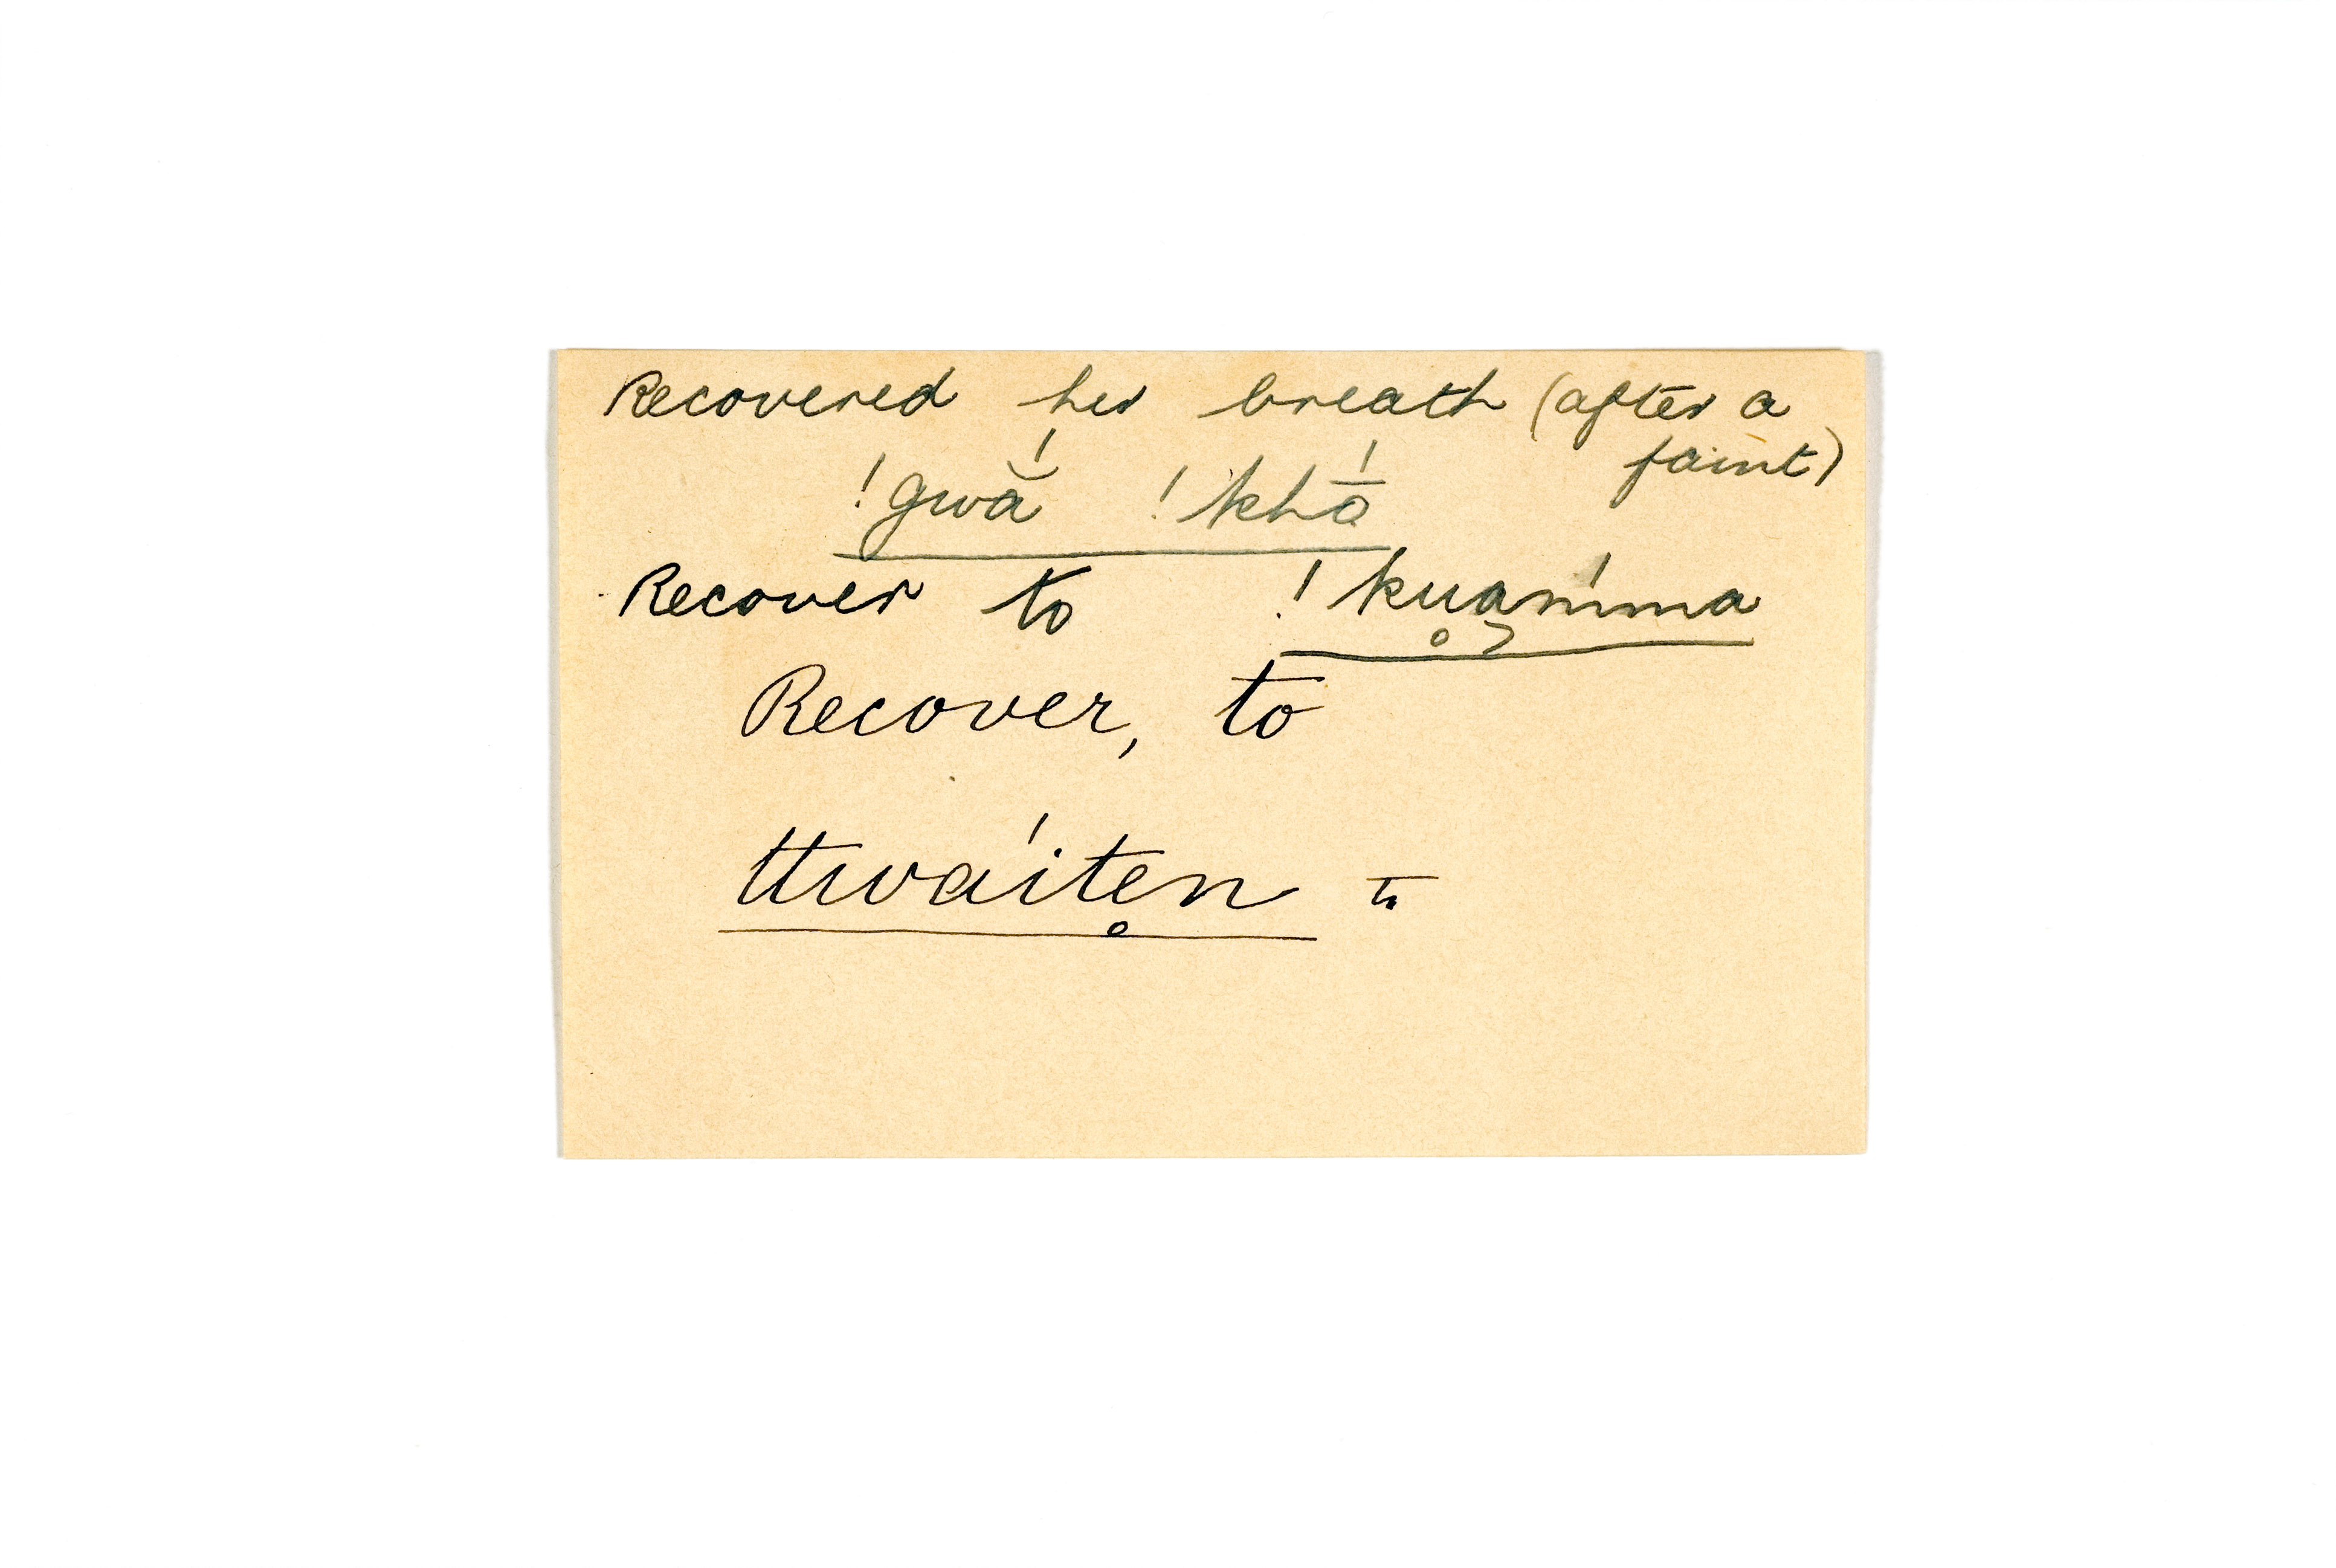 Recovered her breath (after a
faint)
!gwā̆́ !khā̱́
Recover to !ku̥a̡ḿma
Recover, to
ttwáite̥n =